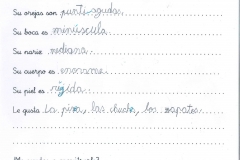 Su orejas son puntiagudas
Su boca es minúscula
Su nariz mediana
Su cuerpo es enorme
Su piel es rígida
Le gusta la pizza, las chuches, los zapatos